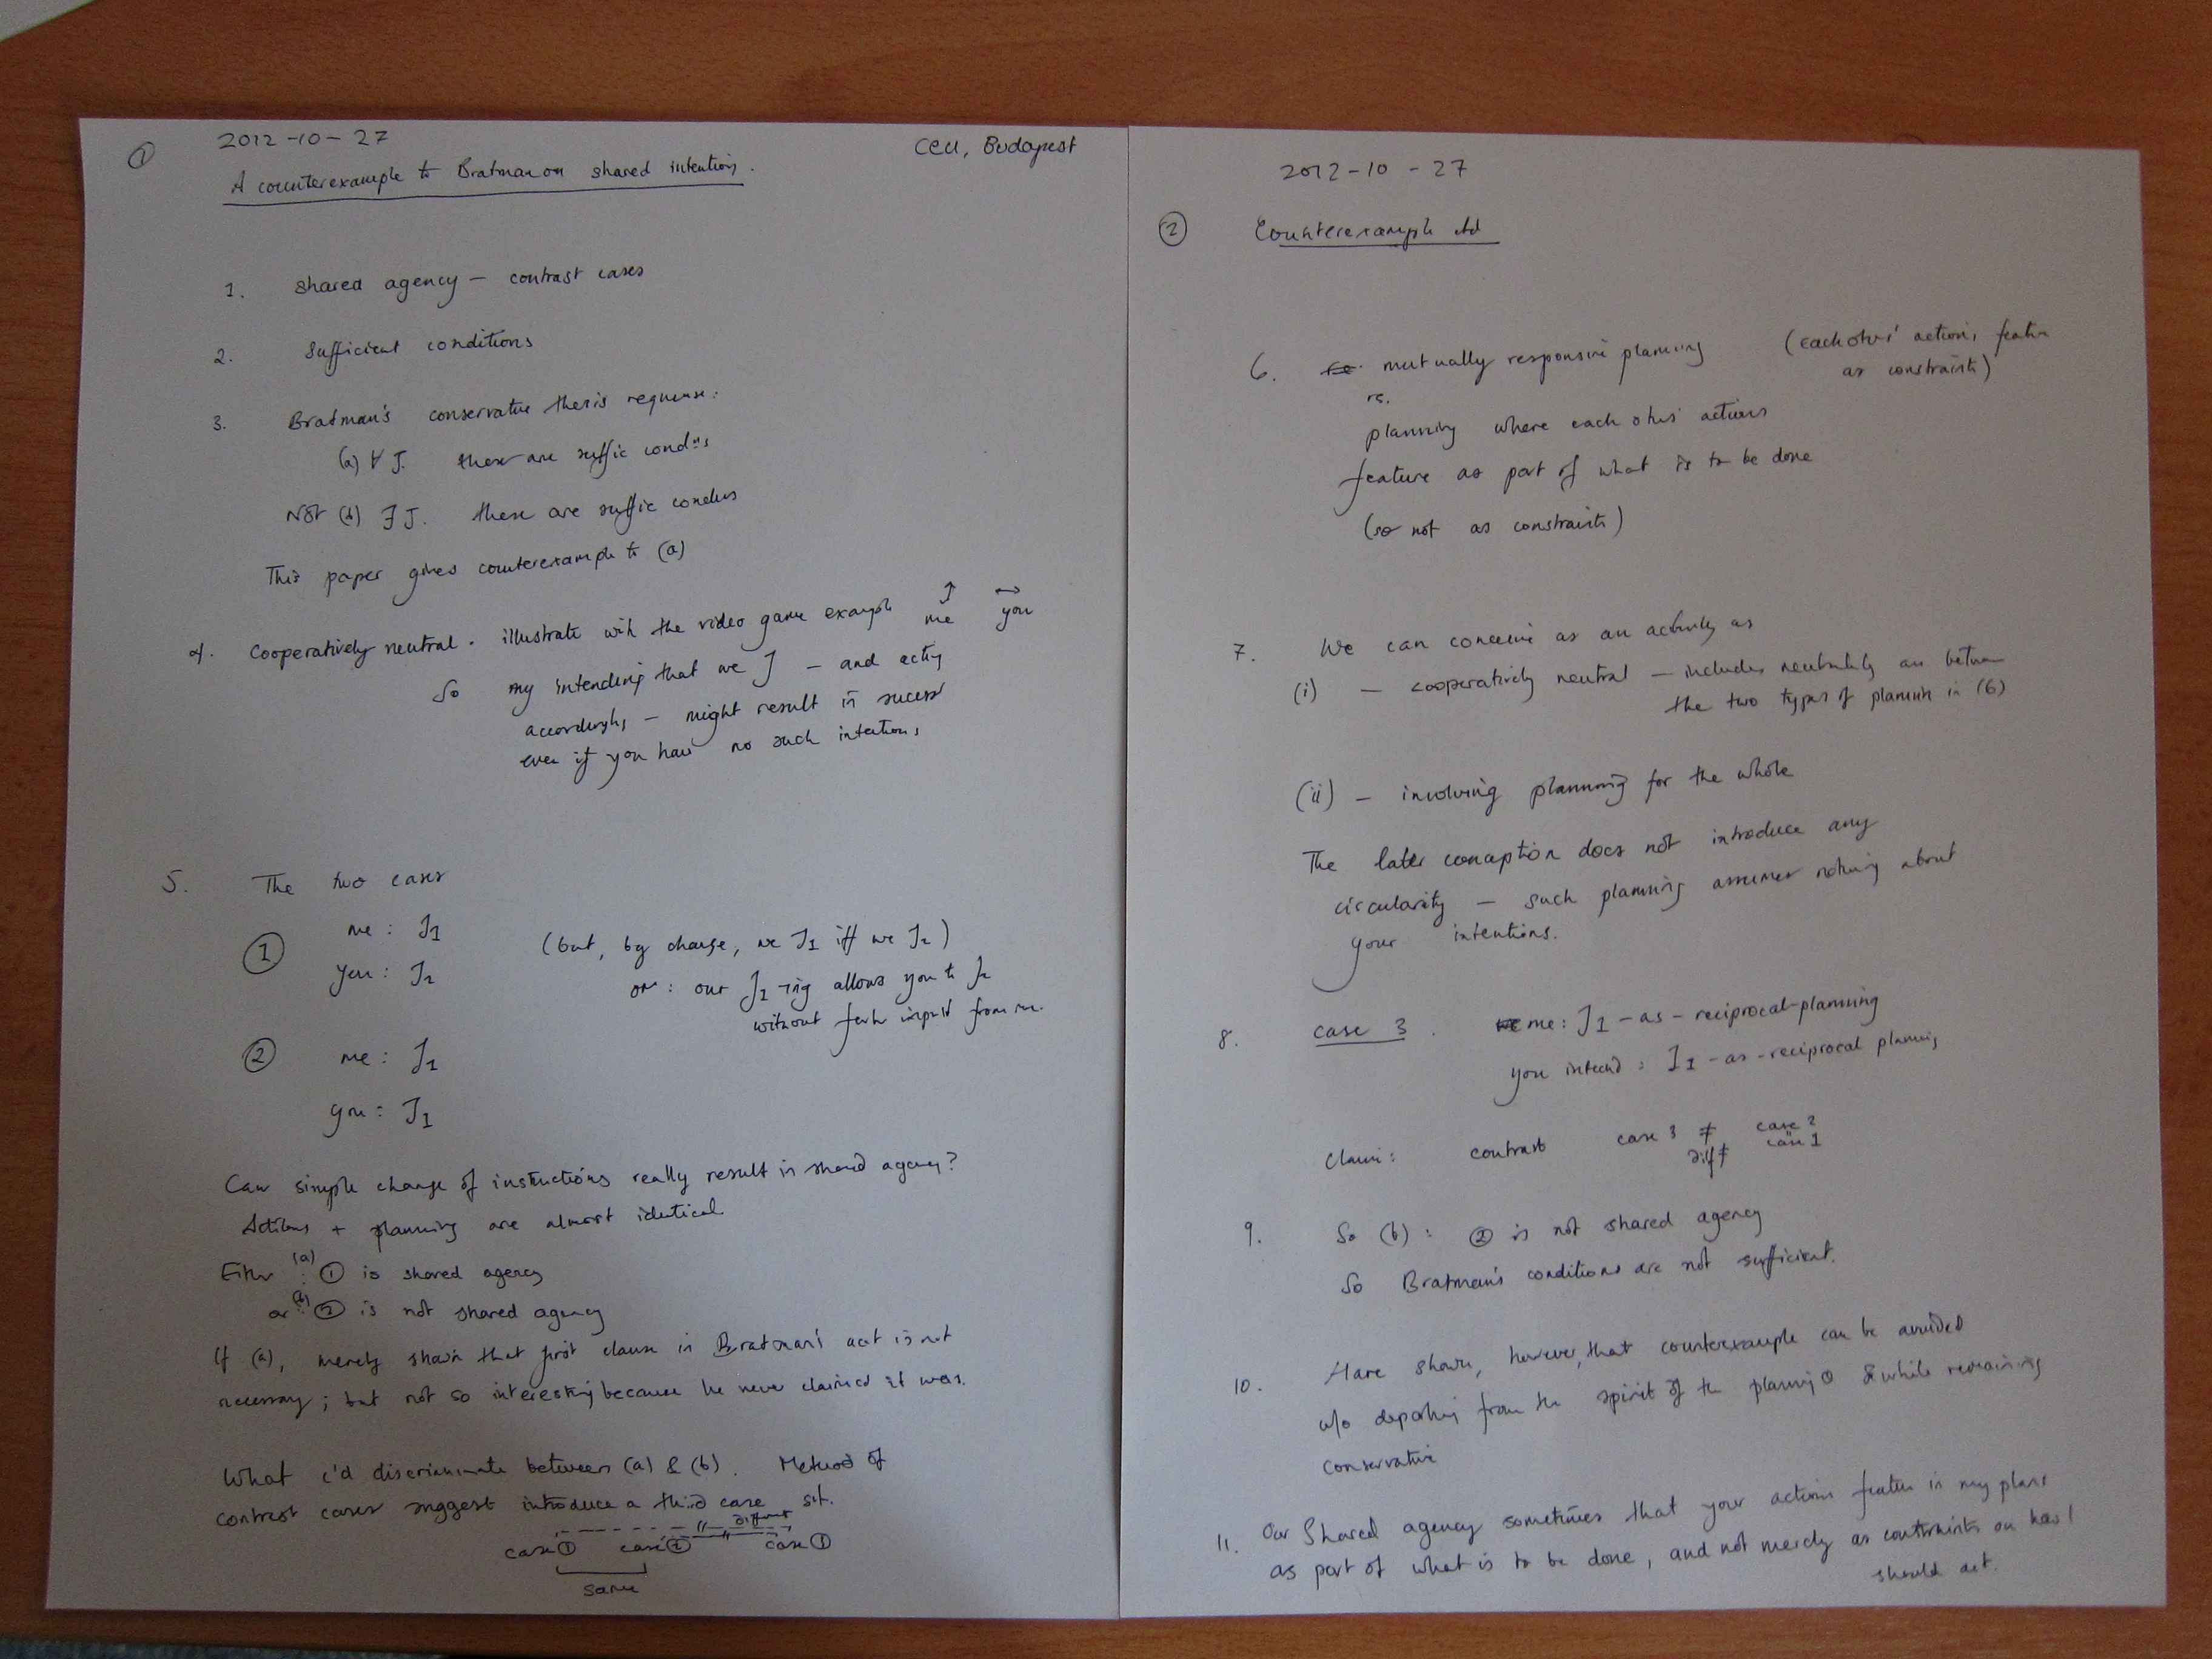 ① 2012-10-27 CEU, Budapest
A counterexample to Bratman on shared intention.
1. shared agency — contrast cases
2. sufficient conditions
3. Bratman's conservative thesis requires:
(a) ∀ J. these are suffic condns
Not (b) ∃ J. these are suffic condns
This paper gives counterexample to (a)
↕ ↔
4. cooperatively neutral. illustrate with the video game example me you
So my intending that we J — and acting
accordingly — might result in success
even if you have no such intention,
5. The two cases
① me: J1
(but, by change, we J1 iff we J2)
you: J2
or: our J1-ing allows you to J2
without furth input from me.
② me: J1
you: J1
Can simple change of instructions really result in shared agency?
Actions + planning are almost identical
Either (a): ① is shared agency
or (b): ② is not shared agency
If (a), merely shown that first clause in Bratman's acct is not
necessary; but not so interesting because he never claimed it was.
What c'd discriminate between (a) & (b). Method of
contrast cases suggest introduce a third case s.t.
different
case① case② case①
same
2012-10-27
② Counterexample ctd
6. mutually responsive planning (each other' action, featur
as constraints)
vs.
planning where each other' actions
feature as part of what is to be done
(so not as constraints)
7. We can conceive as an activity as
(i) — cooperatively neutral — includes neutrality as between
the two types of plannin in (6)
(ii) — involving planning for the whole
The later conception does not introduce any
circularity — such planning assumes nothing about
your intentions.
8. case 3. me: J1-as-reciprocal-planning
you intend: J1-as-reciprocal planning
Claim: contrast case 3 ≠ case 2
diff case 1
9. So (b): ② is not shared agency
So Bratman's conditions are not sufficient.
10. Have shown, however, that counterexample can be avoided
w/o departing from the spirit of the planning & while remaining
conservative
11. Our Shared agency sometimes that your actions featur in my plans
as part of what is to be done, and not merely as constraints on how I
should act.